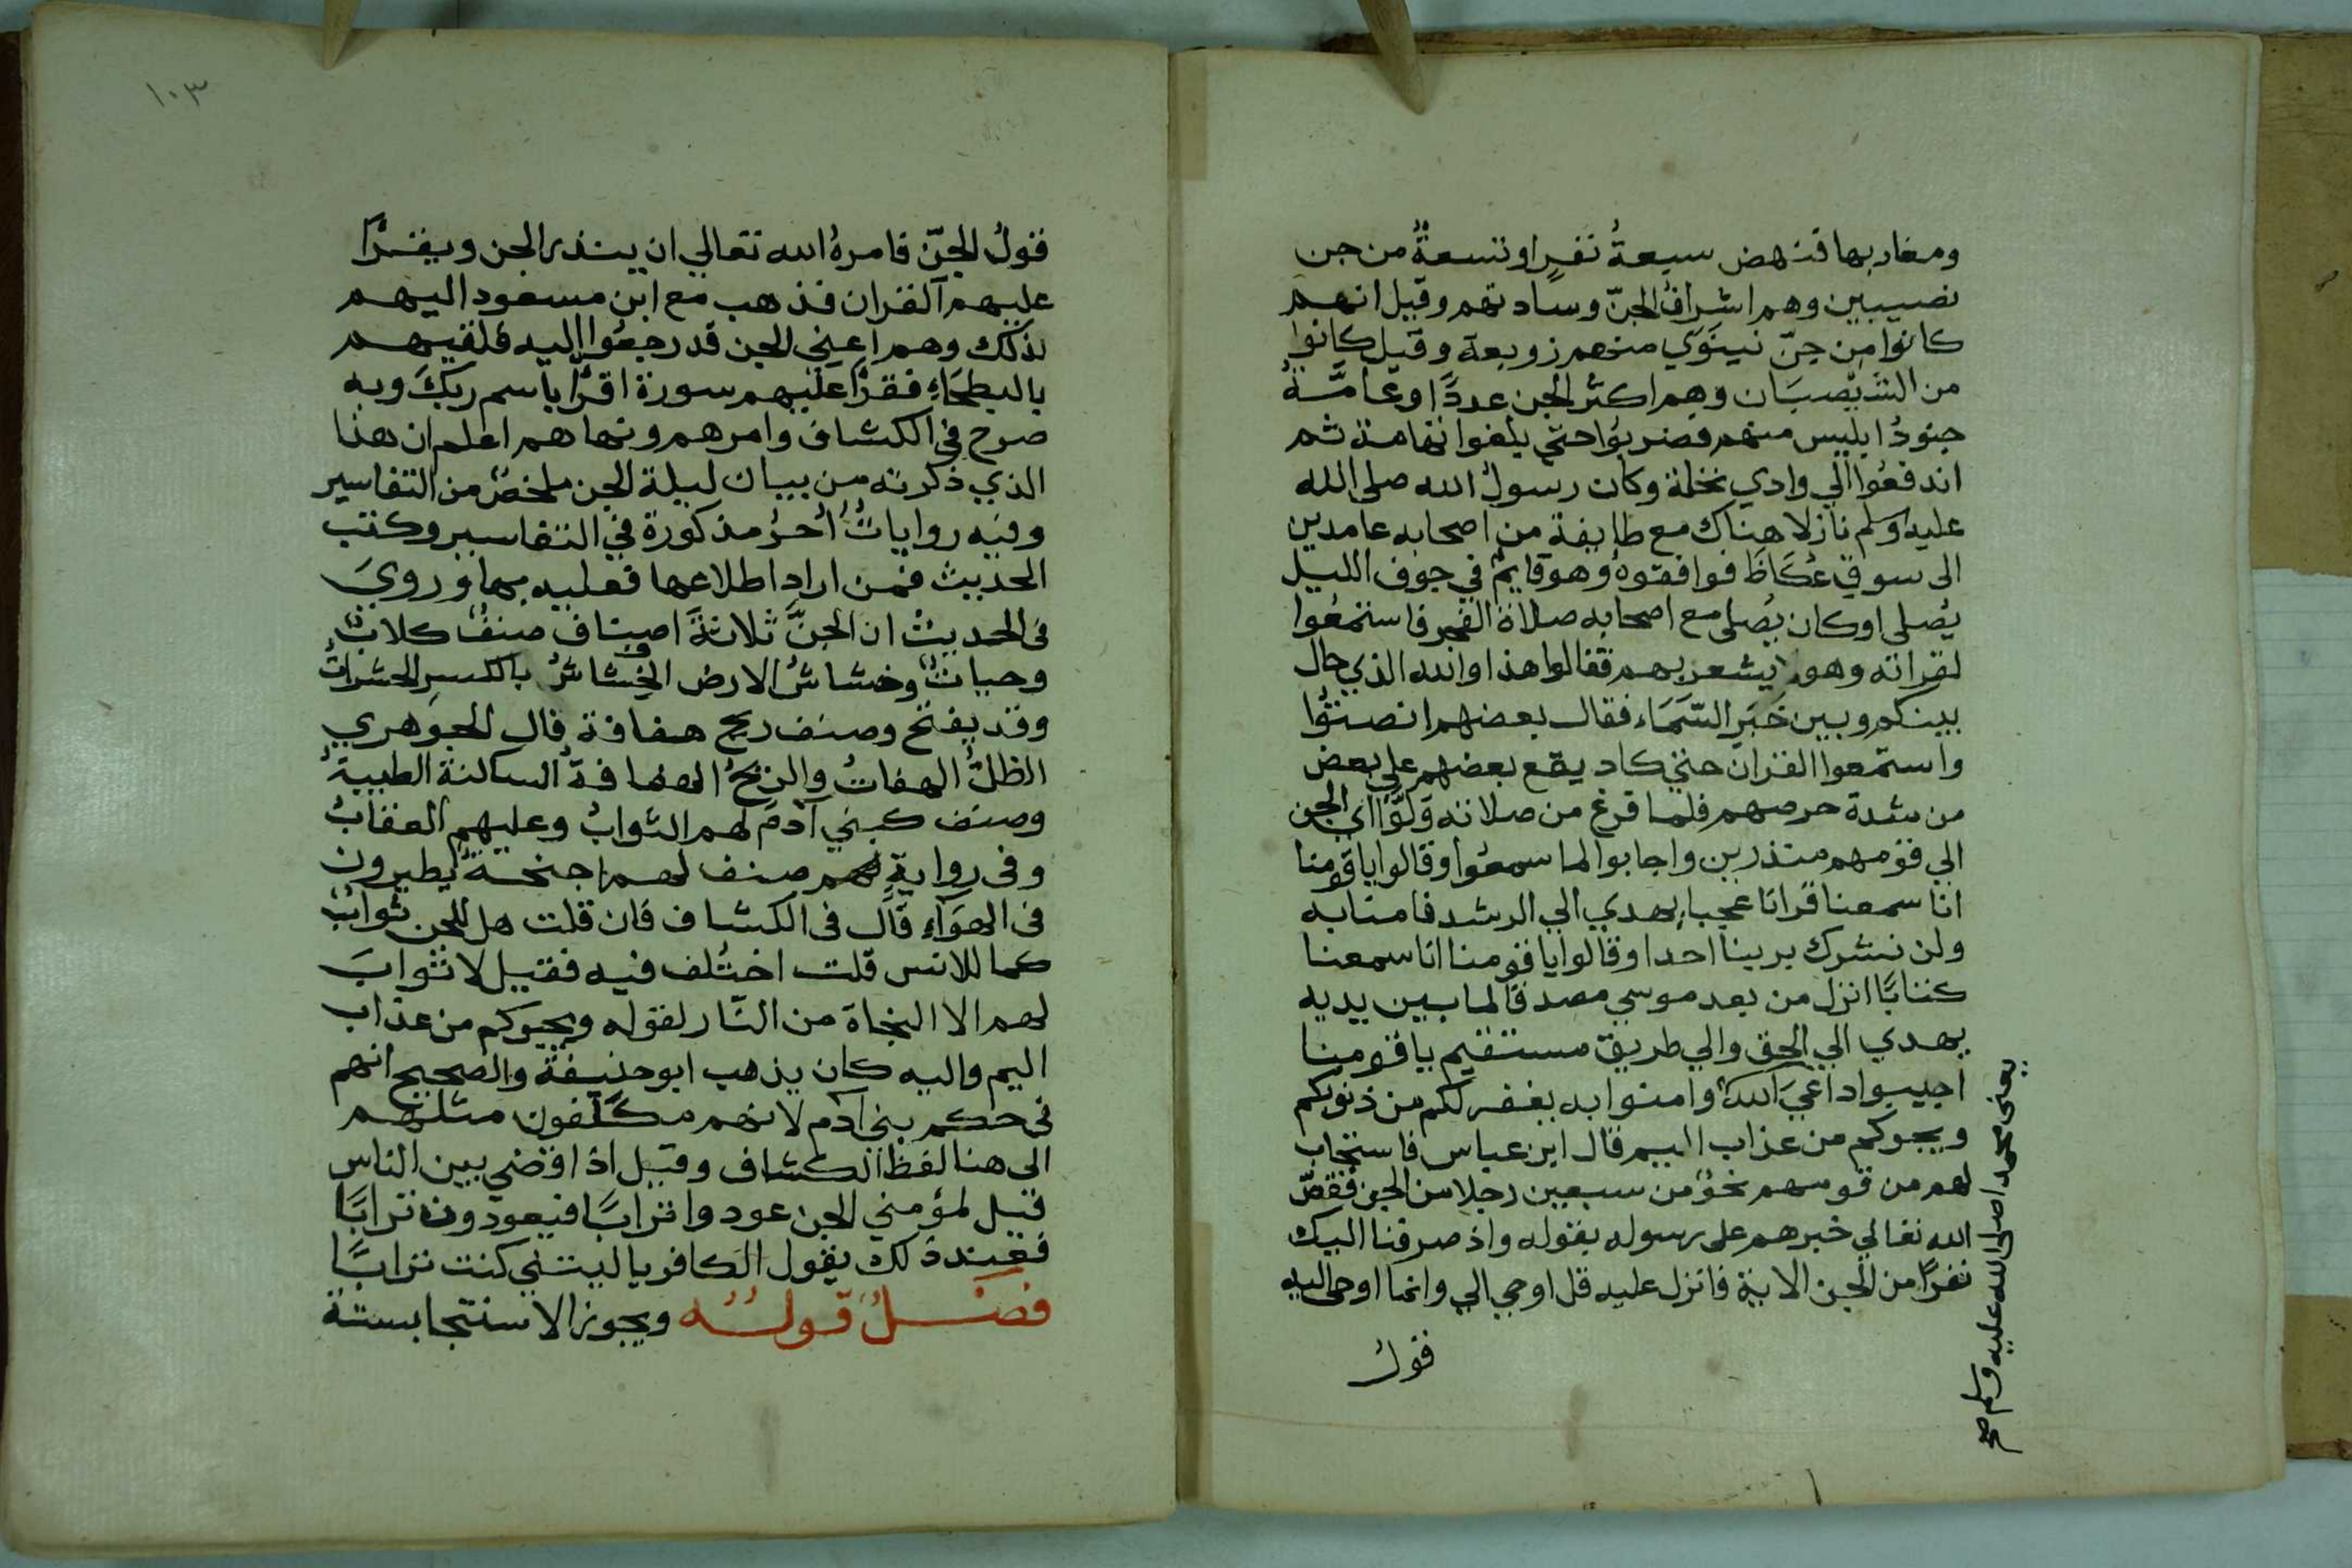 ومغاربها فنهض سبعةُ نفرٍ او تسعةٌ من جن
نصيبين وهم اشرافُ الجنّ وساداتهم وقيل انهم
كانوا من جنّ نينَوَي منهم زوبعة وقيل كانوا
من الشَّيْصَبَان وهم اكثر الجن عددًا وعامَّةُ
جنودُ ابليس منهم فضربُوا حتي بلغوا تهامة ثم
اندفعُوا الي وادي نخلة وكان رسولُ الله صلى الله
عليه وسلم نازلا هناك مع طايفة من اصحابه عامدين
الى سوق عُكَاظَ فوافقوهُ وهو قايمٌ في جوف الليل
يُصلى او كان يُصلى مع اصحابه صلاة الفجر فاستمعُوا
لقراته وهو لا يشعر بهم فقالوا هذا والله الذي حال
بينكم وبين خَبَرِ السَّمَاء فقال بعضهم انصتُوا
واستمعوا القران حتي كاد يقع بعضهم علي بعض
من شدة حرصهم فلما فرغ من صلاته وَلَّوْا اي الجن
الي قومهم منذرين واجابوا لما سمعُوا وقالوا يا قومنا
انا سمعنا قرانا عجبا يهدي الي الرشد فامنا به
ولن نشرك بربنا احدا وقالوا يا قومنا انا سمعنا
كتابًا انزل من بعد موسي مصدقا لما بين يديه
يهدي الي الحق والي طريق مستقيم يا قومنا
اجيبوا داعيَ الله وامنوا به يغفر لكم من ذنوبكم
ويجركم من عذاب اليم قال ابن عباس فاستجاب
لهم من قومهم نحوٌ من سبعين رجلا من الجن فقصّ
الله تعالي خبرهم على رسوله بقوله واذ صرفنا اليك
نفرًا من الجن الاية فانزل عليه قل اوحي الي وانما اوحى اليه
قولُ
يعنى محمدا صلى الله عليه وسلم صح
١٠٣
قولُ الجنّ فامرهُ الله تعالي ان ينذر الجن ويقرأ
عليهم القران فذهب مع ابن مسعود اليهم
لذلك وهم اعني الجن قد رجعُوا اليه فلقيهم
بالبطحَاءِ فقرأ عليهم سورة اقرأ باسم ربكَ وبه
صرح في الكشاف وامرهم ونهاهم اعلم ان هذا
الذي ذكرته من بيان ليلة الجن ملخصٌ من التفاسير
وفيه رواياتٌ أُخَرُ مذكورة في التفاسير وكتب
الحديث فمن اراد اطلاعها فعليه بها ورويَ
فى الحديث ان الجنَّ ثلاثةَ اصناف صنفٌ كلابٌ
وحياتٌ وخشاشُ الارض الخِشاشُ بالكسرِ الحشراتُ
وقد يفتح وصنف ريح هفافة قال الجوهري
الظلُّ الهفافُ والريحُ الهفافةُ الساكنة الطيبةُ
وصنف كبني آدم لهم الثوابُ وعليهم العقابُ
وفى روايةٍ لهم صنف لهم اجنحةٌ يطيرون
فى الهوَآءِ قال فى الكشاف فان قلت هل للجن ثوابٌ
كما للانس قلت اختُلف فيه فقيل لا ثوابَ
لهم الا النجاة من النَّار لقوله ويجركم من عذاب
اليم واليه كان يذهب ابو حنيفة والصحيح انهم
فى حكم بني آدم لانهم مكلَّفون مثلهم
الى هنا لفظ الكشاف وقيل اذا قضي بين الناس
قيل لمؤمني الجن عودوا ترابًا فيعودون ترابًا
فعند ذلك يقول الكافر يا ليتني كنت ترابًا
فصلٌ قولُه ويجوز الاستنجا بستة